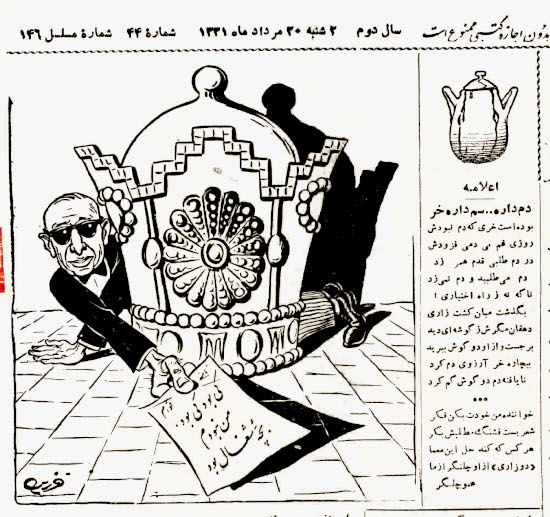 بدون اجازه کتبی ممنوع است
سال دوم
۲ شنبه ۲۰ مرداد ماه ۱۳۳۱
شمارهٔ ۴۴
شمارهٔ مسلسل ۱۴۶
اعلامیه
دم داره...سم داره خر
بوده است خری که دم نبودش
روزی غم بی دمی فزودش
در دم طلبی قدم همی زد
دم می طلبید و دم نمی زد
ناگه نه ز راه اختیاری
بگذشت میان کشت زاری
دهقان مگرش ز گوشه ای دید
برجست و از او دو گوش ببرید
بیچاره خر آرزوی دم کرد
نایافته دم دو گوش گم کرد
خواننده من خودت بکن فکر
شعریست قشنگ، مطلبش بکر
هر کس که کند حل این معما
«دوزاری» از او چلنگر از ما
چلنگر
کی بود کی بود
من نبودم
بچه شغال بود